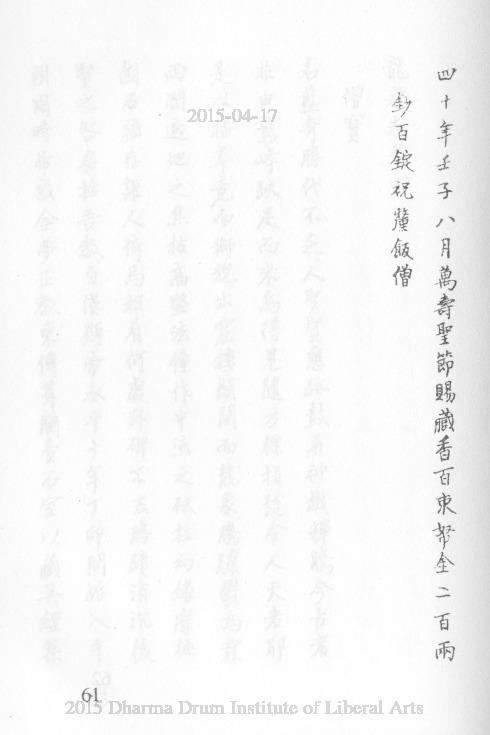 四十年壬子八月萬壽聖節賜藏香百束帑金二百兩
鈔百錠祝釐飯僧
2015-04-17
61
2015 Dharma Drum Institute of Liberal Arts